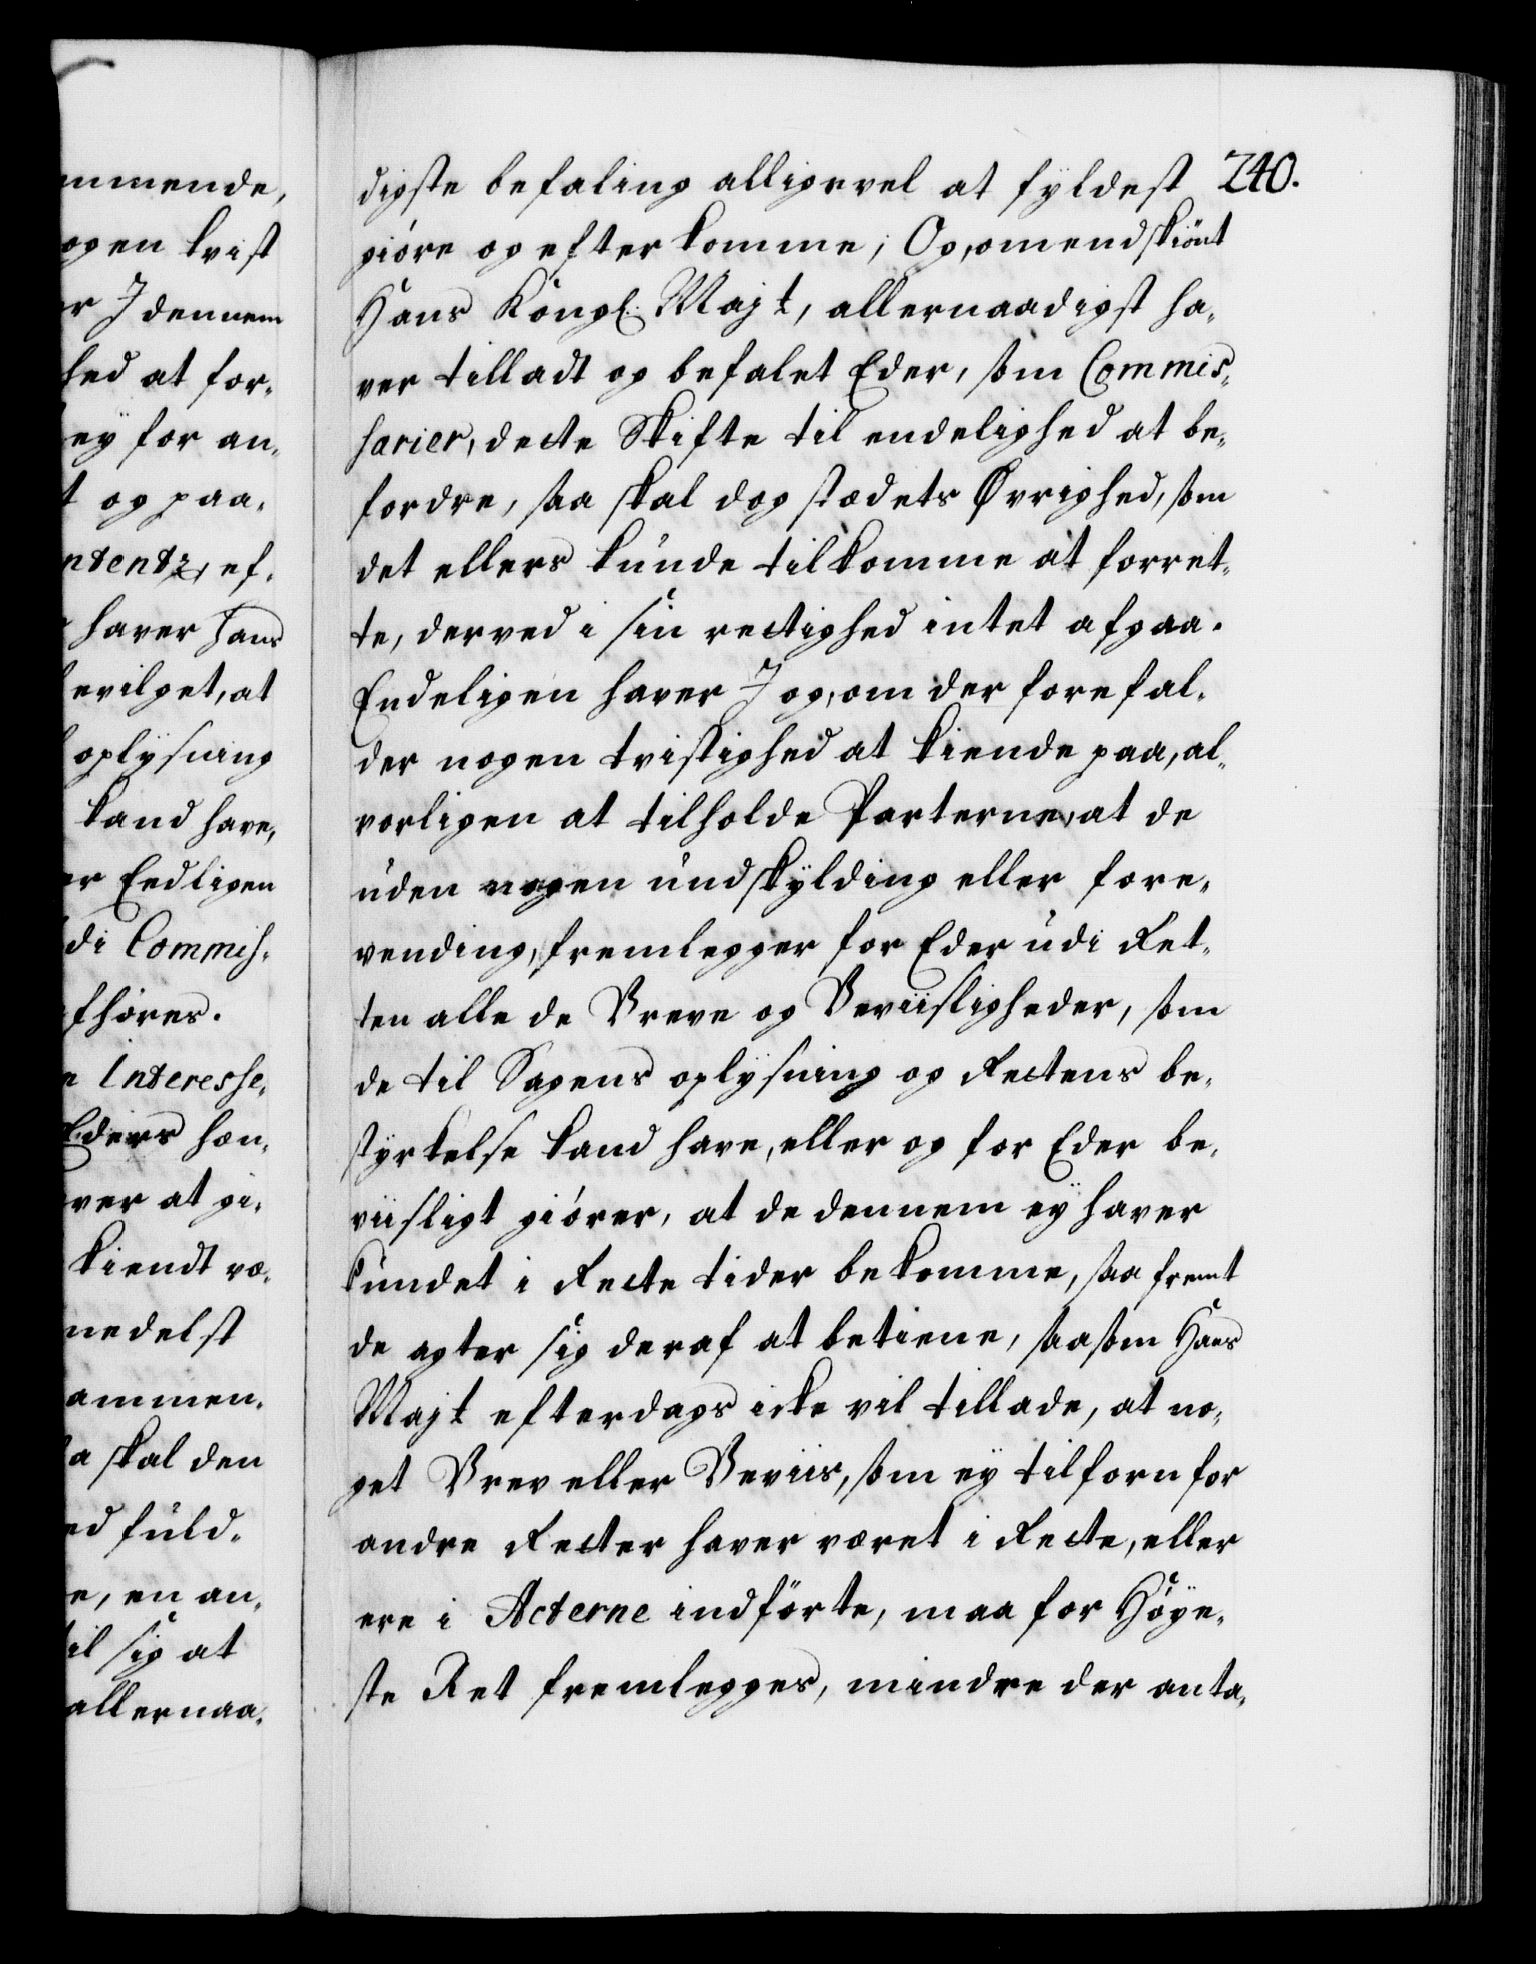 mmende,
ogen tvist
r J dennem
hed at for-
ey for an-
t og paa-
ntentz, ef-
haver Hans
evilget, at
oplÿsning
kand have,
er Eedligen
di Commiss-
fhöres.
n Interesse-
Eders hæn-
ver at gi-
kiendt væ-
medelst
ammen-
a skal den
ed fuld-
e, en an-
til sig at
allernaa-
240.
digste befaling alligevel at fÿldest
giöre og efterkomme; Og, omendskiönt
Hans Kongl. Majt, allernaadigst ha-
ver tilladt og befalet Eder, som Commis-
sarier, dette Skifte til endelighed at be-
fordre, saa skal dog stædets Øvrighed, som
det ellers kunde tilkomme at forret-
te, derved i sin rettighed intet afgaa.
Endeligen haver J og, om der forefal-
der nogen tvistighed at kiende paa, al-
vorligen at tilholde Parterne, at de
uden nogen undskÿlding eller fore-
vending, fremlegger for Eder udi Ret-
ten alle de Breve og Beviisligheder, som
de til Sagens oplÿsning og Rettens be-
stÿrkelse kand have, eller og for Eder be-
viisligt giörer, at de dennem eÿ haver
kundet i Rette tider bekomme, saa fremt
de agter sig deraf at betiene, saasom Hans
Majt efterdags icke vil tillade, at no-
get Brev eller Beviis, som eÿ tilforn for
andre Retter haver været i Rette, eller
ere i Acterne indförte, maa for Höÿe-
ste Ret fremlegges, mindre der anta-